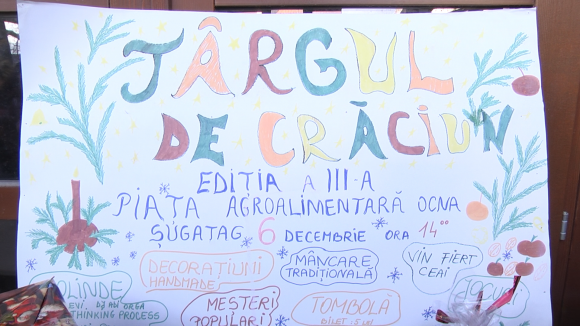 TÂRGUL
DE CRĂCIUN
EDIȚIA A III-A
PIAȚA AGROALIMENTARĂ OCNA
ȘUGATAG 6 DECEMBRIE ORA 14⁰⁰
DECORAȚIUNI
HANDMADE
MÂNCARE
TRADIȚIONALĂ
VIN FIERT
CEAI
COLINDE
THINKING PROCESS
MEȘTERI
POPULARI
TOMBOLA
JOCURI